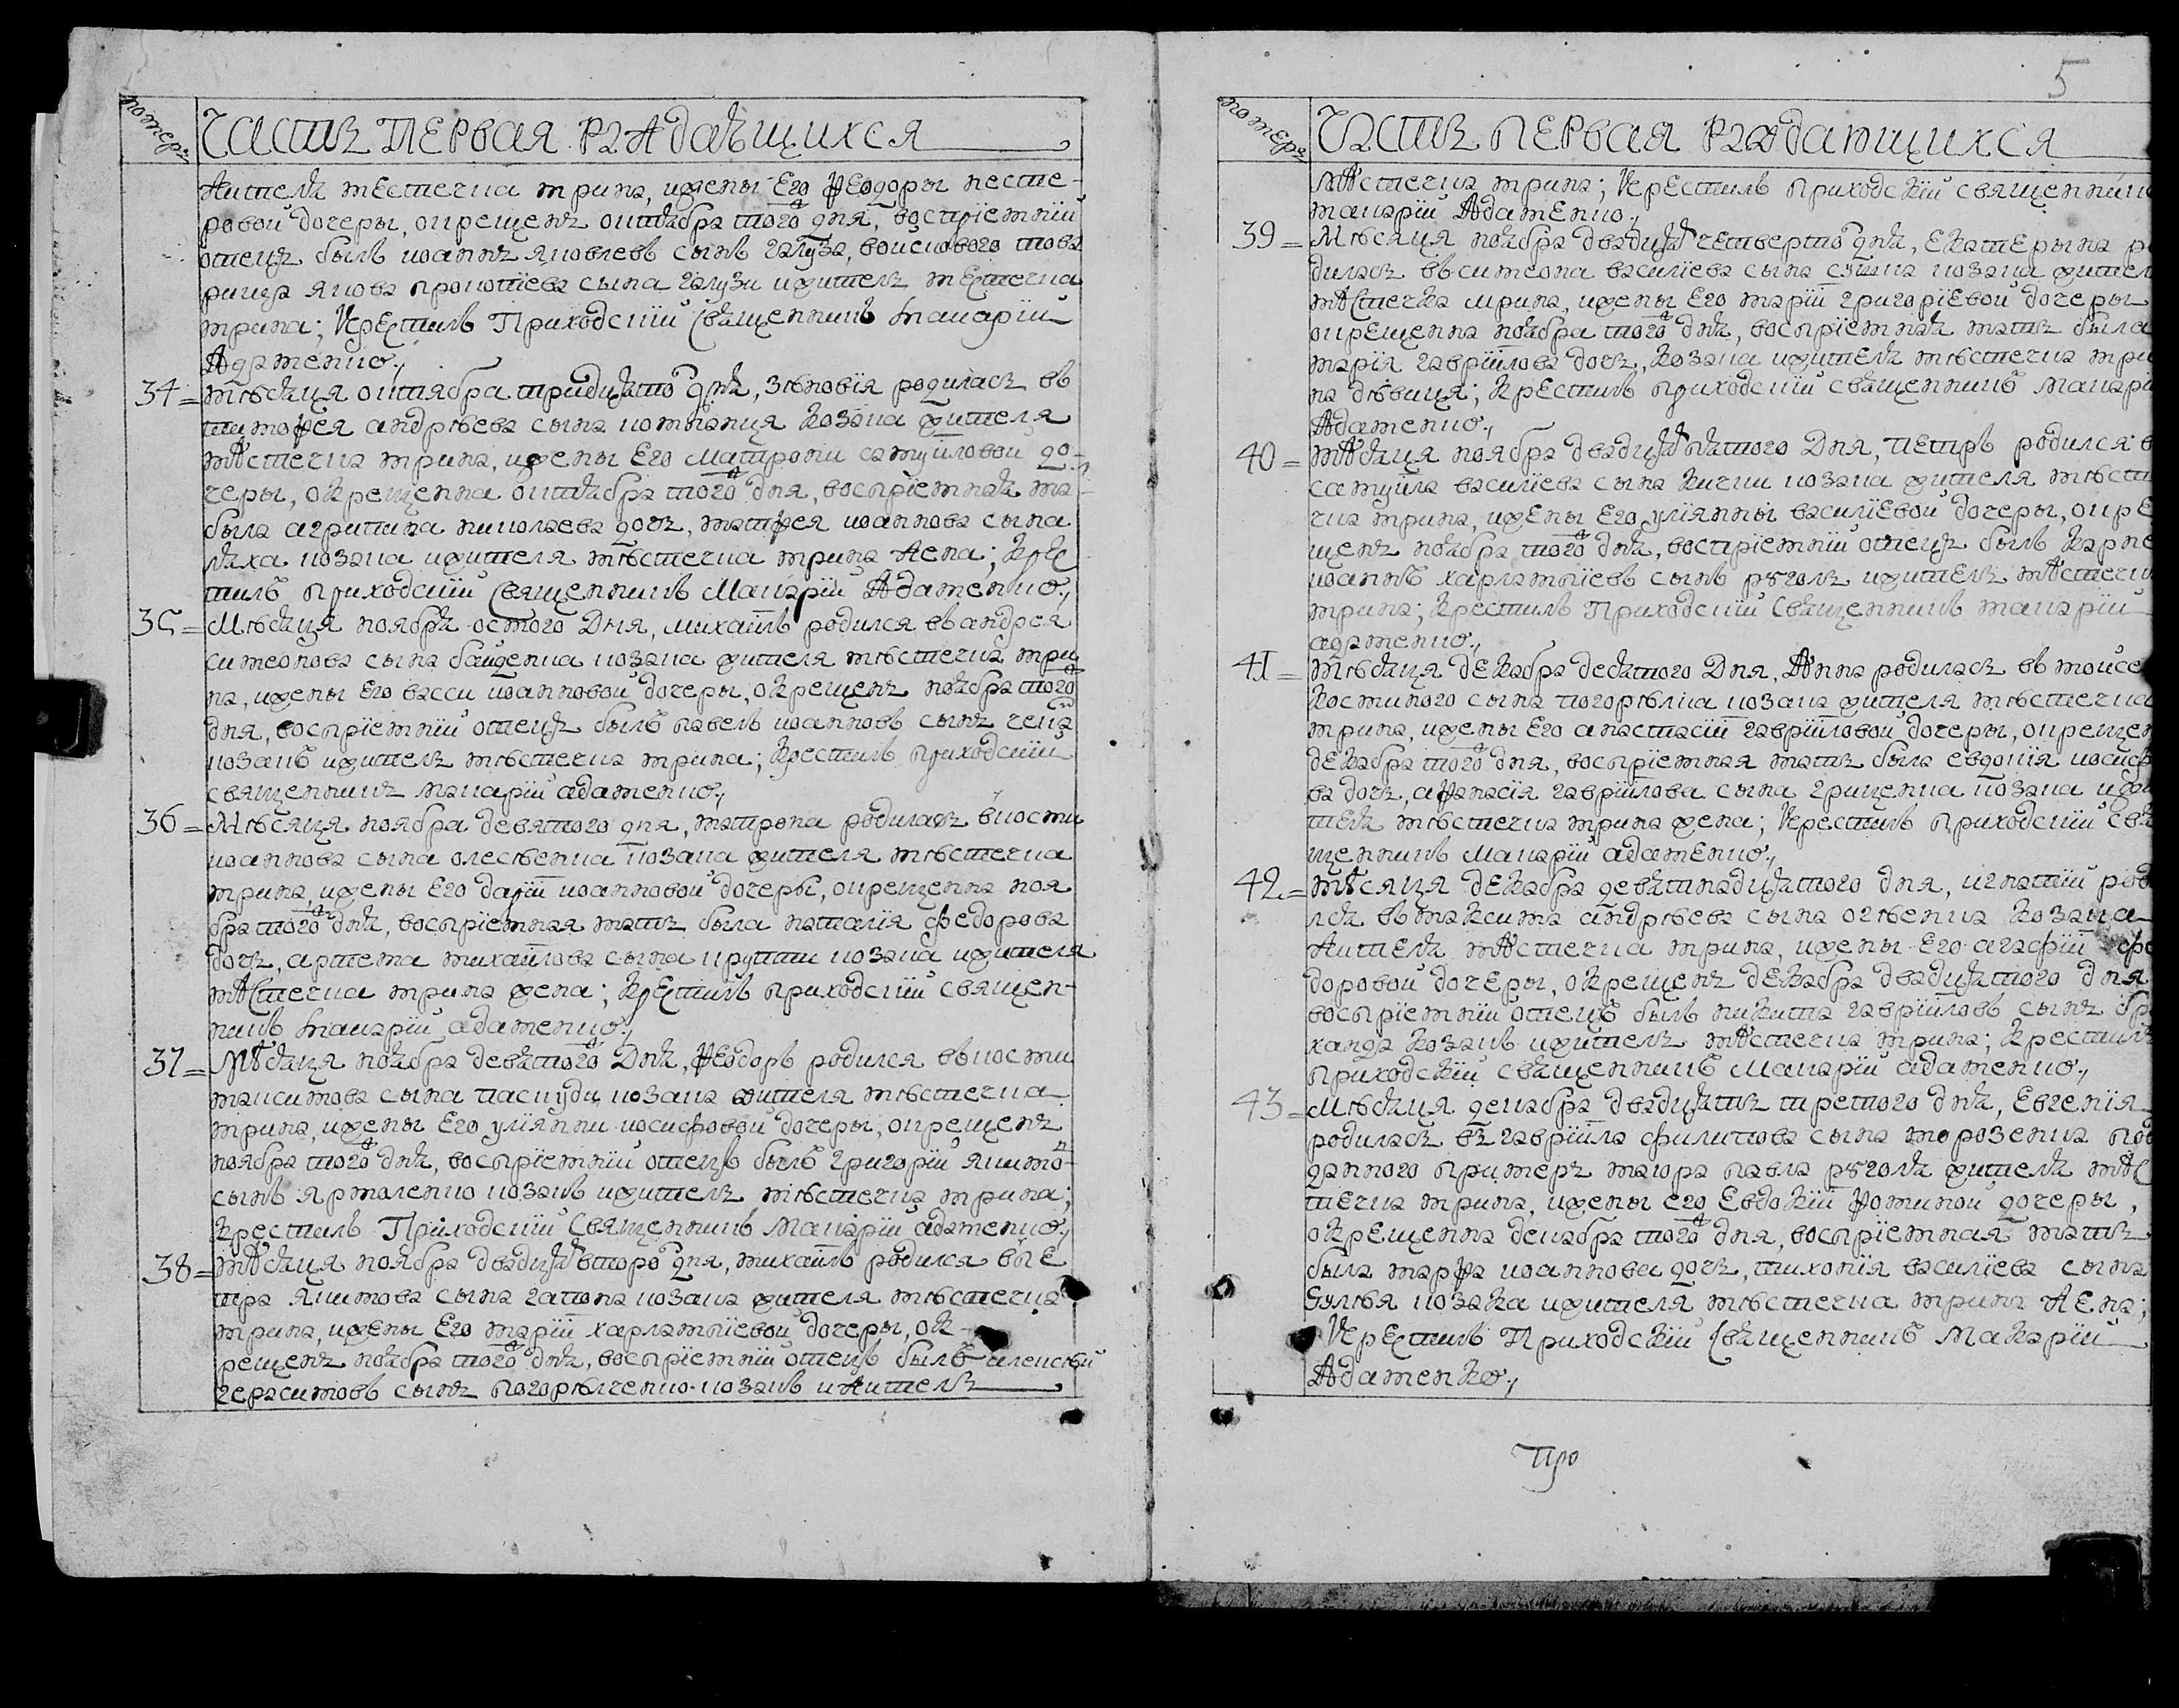 номеръ
Часть первая раждающихся
жителя местечка мрина, ижены Его Ѳеодоры несте-
ровой дочеры, окрещенъ октября того дня, воспріемній
отецъ былъ иоаннъ яковлевъ сынъ галуза, войскового това
рища якова прокопіева сына галузи ижитель местечка
мрина; Крестилъ Приходскій Священникъ Макарій
Адаменко.,
34= мѣсяца октября тридцято дня, зѣновія родилась въ
тимоѳея андрѣева сына козака жителя
мѣстечка мрина, ижены Его Матрони самуйловой до-
черы, окрещенна октября того дня, воспріемная ма-
была агрипина николаева дочъ, матѳея иоаннова сына
ляха козака ижителя мѣстечка мрина жена; Крес
тилъ приходскій Священникъ Макарій Адаменко.,
35= Мѣсяца ноября осмого Дня, михаилъ родился въ андрея
симеонова сына козака жителя мѣстечка мри
на, ижены Его васси иоанновой дочеры, окрещенъ ноября того
дня, воспріемній отецъ былъ павелъ иоанновъ сынъ
козакъ ижитель мѣстечка мрина; Крестилъ приходскій
священникъ макарій адаменко.,
36= Мѣсяца ноября девятого дня, матрона родилась вкости
иоаннова сына олесѣенка козака жителя мѣстечка
мрина, ижены Его даріи иоанновой дочеры, окрещенна ноя
бра того дня, воспріемная мать была наталія федорова
дочъ, артема михайлова сына крупки козака ижителя
мѣстечка мрина жена; Крестилъ приходскій священ-
никъ макарій адаменко.,
37= Мѣсяца ноября девятого Дня, Ѳеодоръ родился вкости
максимова сына паскуди козака жителя мѣстечка
мрина, ижены Его уліянни иосифовой дочеры, окрещенъ
ноября того дня, воспріемній отецъ былъ григорій якимо
сынъ ярмоленко козакъ ижитель мѣстечка мрина;
Крестилъ Приходскій Священникъ Макарій адаменко.,
38= мѣсяца ноября двадцят второ дня, михаилъ родился въ пе
тра якимова сына гапона козака жителя мѣстечка
мрина, ижены Его маріи харлампіевой дочеры, ок-
рещенъ ноября того дня, воспріемній отецъ былъ алексѣй
герасимовъ сынъ погорѣлченко козакъ ижитель
5
номеръ
Часть первая раждающихся
мѣстечка мрина; Крестилъ приходскій священник
макарій Адаменко.,
39= Мѣсяца ноября двадцят четверто дня, Екатерына ро
дилась въ симеона василіева сына козака жител
мѣстечка мрина, ижены Его маріи григоріевой дочеры
окрещенна ноября того дня, воспріемная мать была
марія гавріилова дочъ, козака ижителя мѣстечка мри
на дѣвица; Крестилъ приходскій священникъ макарі
Адаменко.,
40= мѣсяца ноября двадцят пятого Дня, петръ родился в
самуйла василіева сына кички козака жителя мѣсте
чка мрина, ижены Его уліянны василіевой дочеры, окре
щенъ ноября того дня, воспріемній отецъ былъ
иоаннъ харлампіевъ сынъ ижитель мѣстечк
мрина; Крестилъ Приходскій Священникъ макарій
адаменко.,
41= мѣсяца декабра десятого Дня, Анна родилась въ мойсе
Костиного сына погорѣлка козака жителя мѣстечка
мрина, ижены Его анастасіи гавріиловой дочеры, окрещен
декабра того дня, воспріемная мать была евдокія иосифо
ва дочъ, аѳанасія гавріилова сына грищенка козака ижи
теля мѣстечка мрина жена; Крестилъ приходскій свя
щенникъ макарій адаменко.,
42= мѣсяца декабра девятнадцятого дня, игнатій роди
лся въ максима андрѣева сына козака
жителя мѣстечка мрина, ижены Его агафіи фе
доровой дочеры, окрещенъ декабра двадцятого дня
воспріемній отецъ былъ никита гавріиловъ сынъ
козакъ ижитель мѣстечка мрина; Крестилъ
приходскій священникъ Макарій адаменко.,
43= Мѣсяца декабра двадцять третого дня, Евгенія
родилась въ гавріила филипова сына морозенка под
данного примеръ маіора павла жителя мѣс
течка мрина, ижены его Евдокіи Ѳоминой дочеры,
окрещенна декабра того дня, воспріемная мать
была марѳа иоаннова дочъ, тихонія василіева сына
козака ижителя мѣстечка мрина жена;
Крестилъ Приходскій Священникъ Макарій
Адаменко.,
про